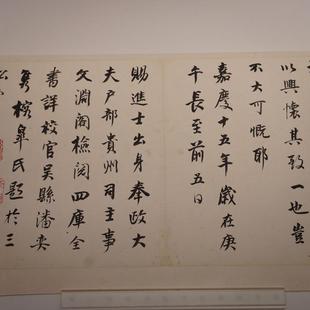 以興懷其致一也豈
不大可慨耶
嘉慶十五年歲在庚
午長至前五日
賜進士出身奉政大
夫戶部貴州司主事
文淵閣檢閱四庫全
書詳校官吳縣潘奕
雋榕皋氏題於三